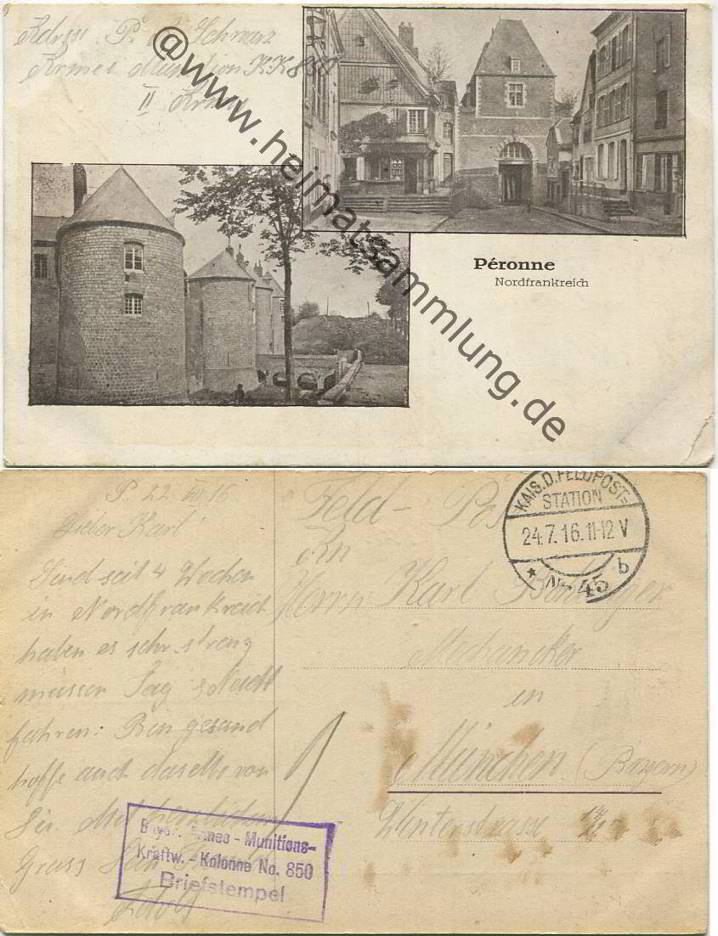 Adresse P. Schwarz
Armee Munition K.K 850
II Armee
@www.heimatsammlung.de
Péronne
Nordfrankreich
P. 22. VII 16.
Lieber Karl!
Sind seit 4 Wochen
in Nordfrankreich
haben es sehr streng
müssen Tag & Nacht
fahren. Bin gesund
hoffe auch dasselbe von
Dir. Mit herzlichem
Gruss Dein
Feld-Post
An
Herrn Karl
Mechaniker
in
München (Bayern)
Winterstrasse
KAIS. D. FELDPOST=
STATION
24.7.16.11-12 V
* Nr. 45 b
Bayer. Armee - Munitions-
Kraftw. - Kolonne No. 850
Briefstempel